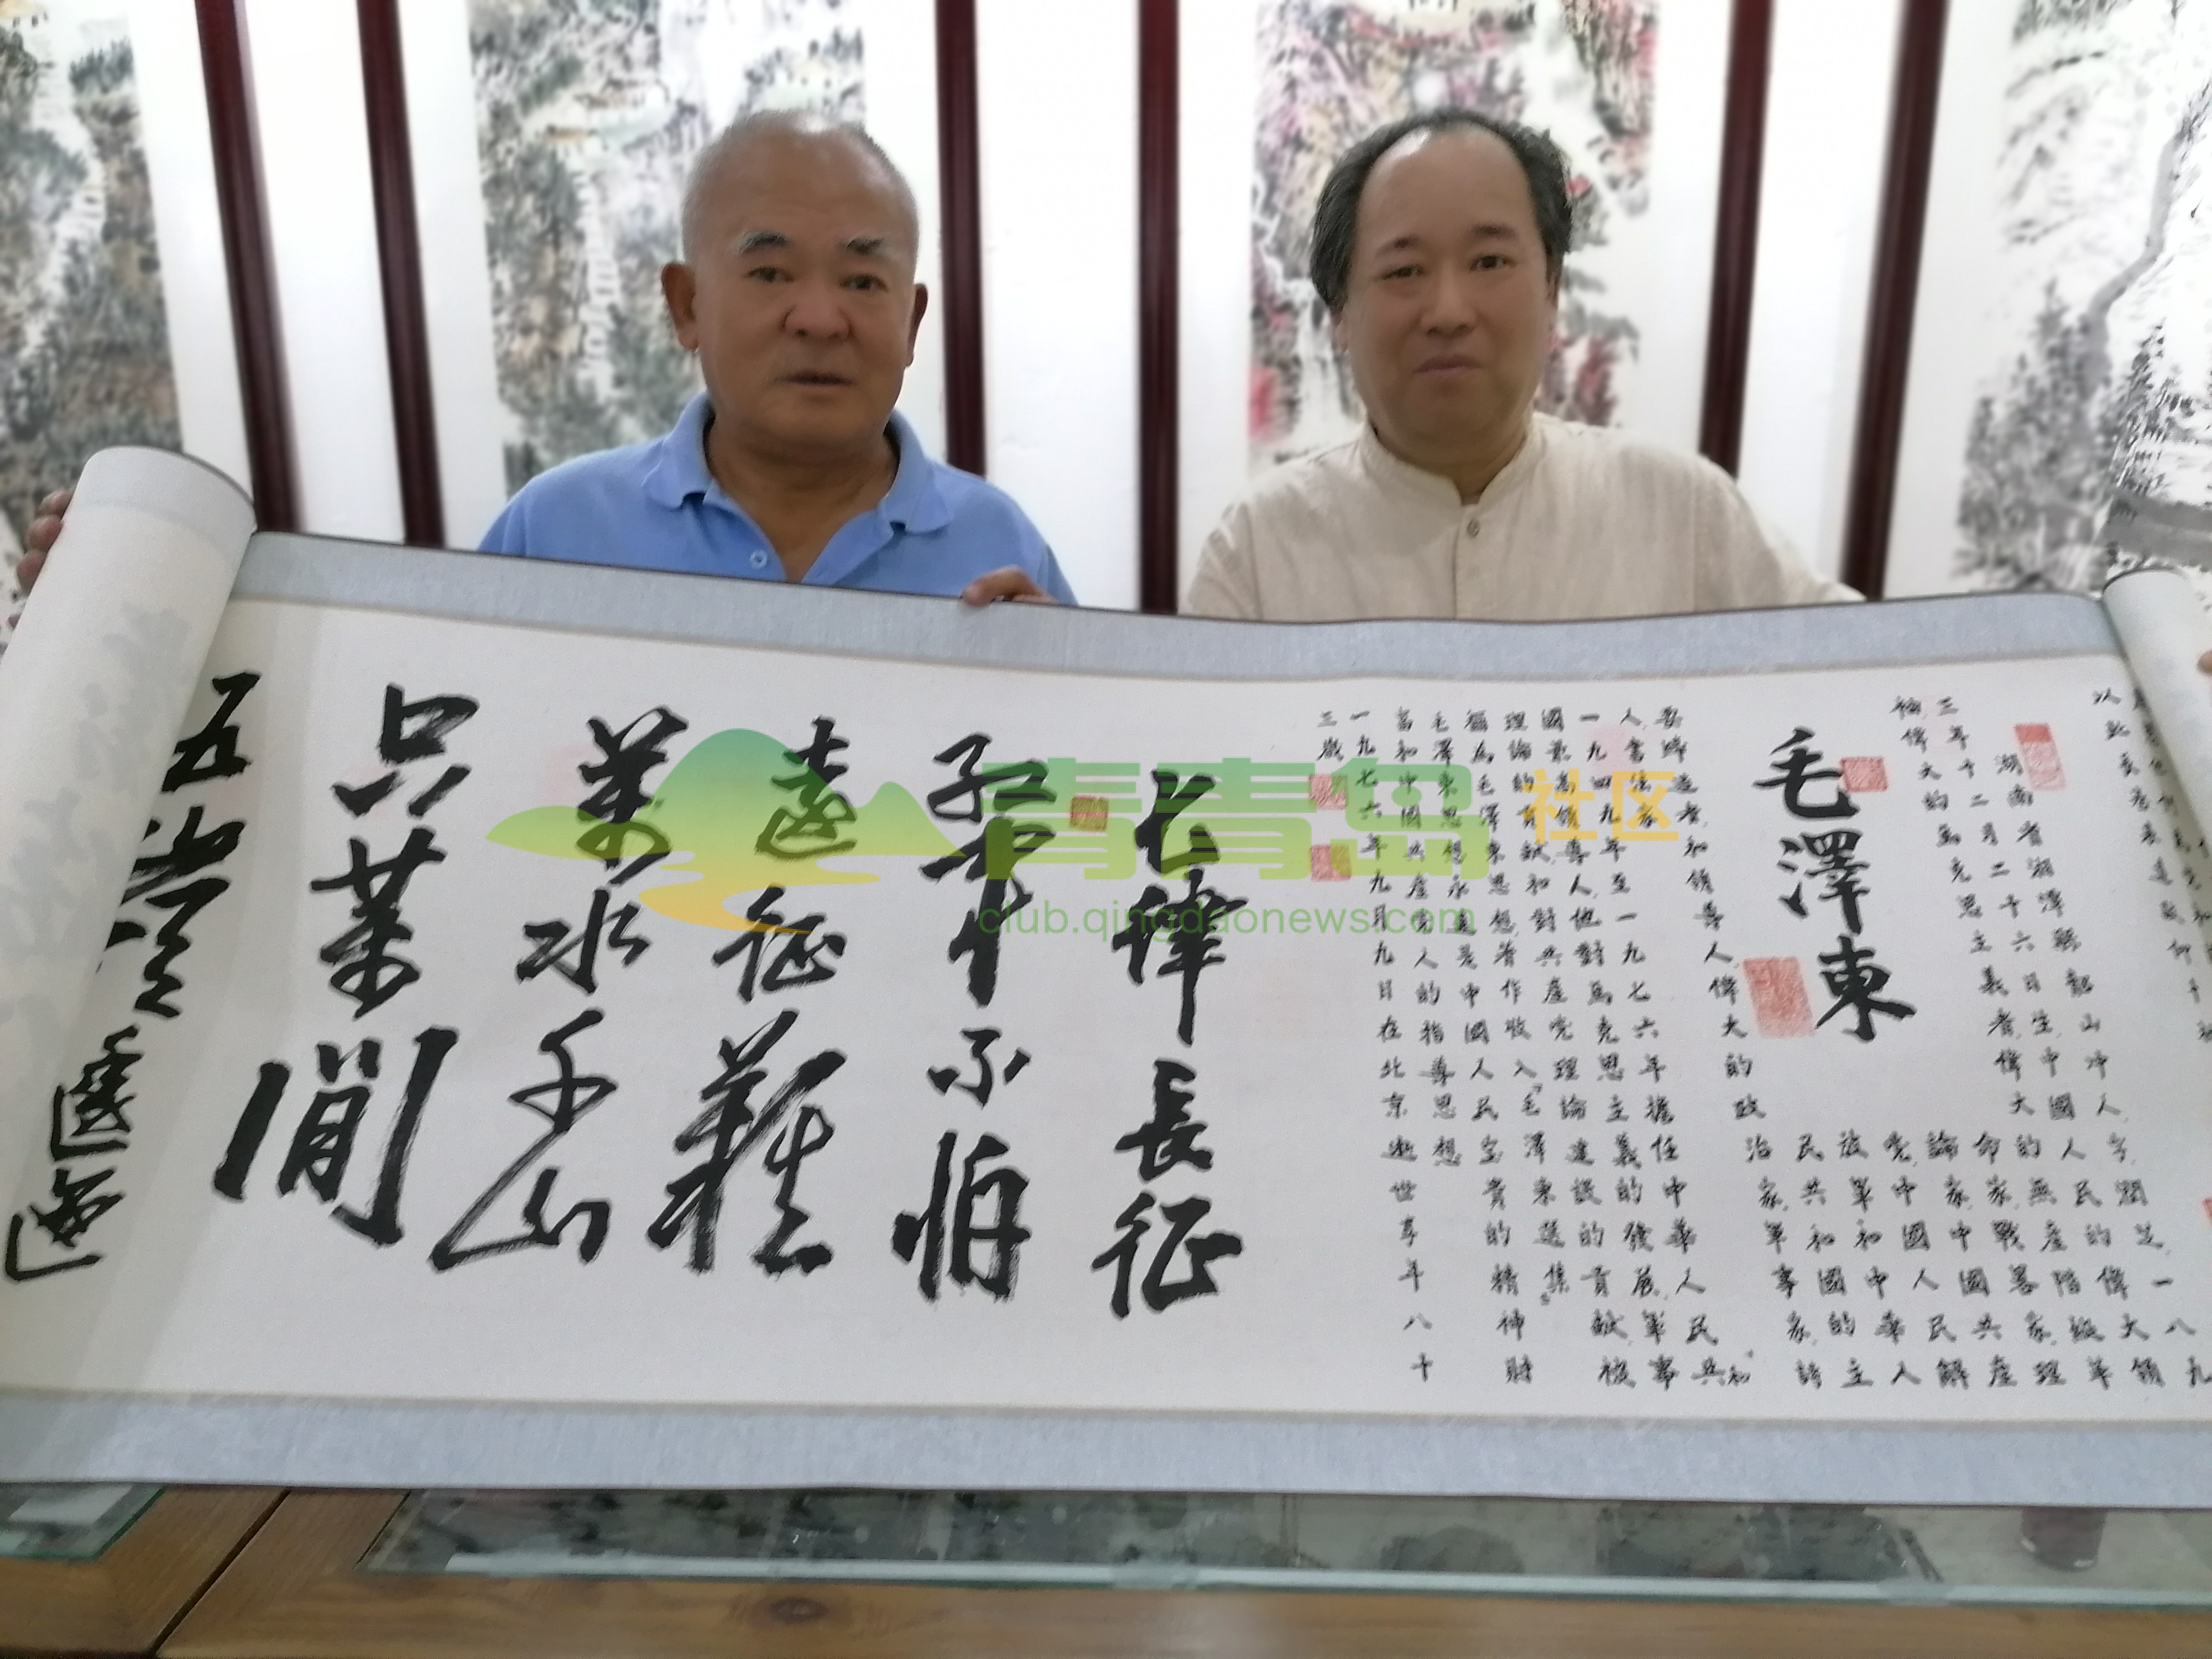 以此長卷來追
湖南省湘潭縣韶山冲人,字潤之,一八九
三年十二月二十六日生,中國人民的偉大領
袖,偉大的馬克思主義者,偉大的無產階級革
命家,戰畧家,理
論家,中國共產
黨,中國人民解
放軍和中華人
民共和國的主
毛澤東
要締造者和領導人,偉大的政治家,軍事家,詩
人,書法家
一九四九年至一九七六年擔任中華人民共和
國最高領導人,他對馬克思主義的發展,軍事
理論的貢獻和對共產党理論建設的貢獻,被
稱為毛澤東思想,著作收入毛澤東選集。
毛澤東思想永遠是中國人民宝貴的精神財
富和中國共產黨人的指導思想
一九七六年九月九日在北京逝世享年八十
三歲
七律長征
紅軍不怕
遠征難
萬水千山
只等閒
五嶺逶迤
青青岛社区
club.qingdaonews.com